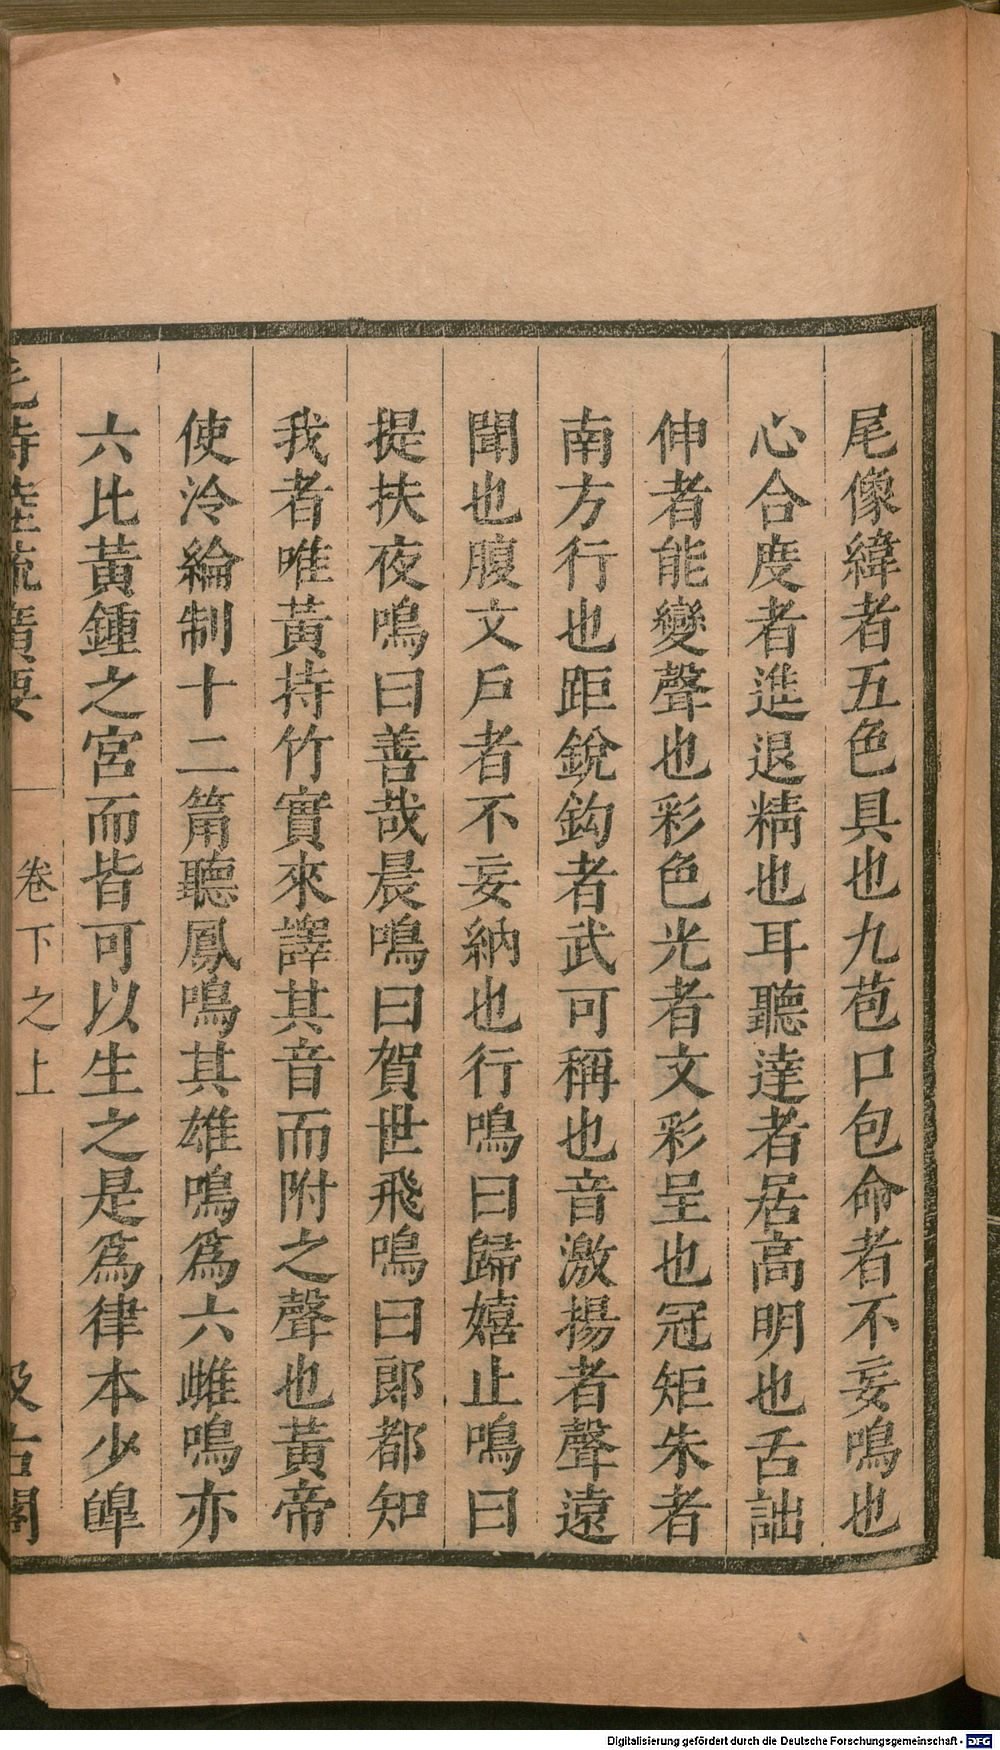 尾像緯者五色具也九苞口包命者不妄鳴也
心合度者進退精也耳聽達者居高明也舌詘
伸者能變聲也彩色光者文彩呈也冠矩朱者
南方行也距銳鈎者武可稱也音激揚者聲遠
聞也腹文戶者不妄納也行鳴曰歸嬉止鳴曰
提扶夜鳴曰善哉晨鳴曰賀世飛鳴曰郎都知
我者唯黃持竹實來譯其音而附之聲也黃帝
使泠綸制十二筩聽鳳鳴其雄鳴爲六雌鳴亦
六比黃鍾之宮而皆可以生之是爲律本少皥
毛詩陸疏廣要
卷下之上
汲古閣
Digitalisierung gefördert durch die Deutsche Forschungsgemeinschaft - DFG